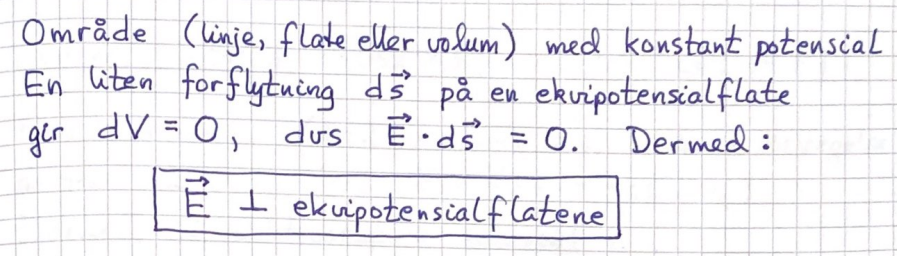 Område (linje, flate eller volum) med konstant potensial
En liten forflytning d𝑠⃗ på en ekvipotensialflate
gir dV = 0, dvs E⃗ · ds⃗ = 0. Dermed:
E⃗ ⊥ ekvipotensialflatene